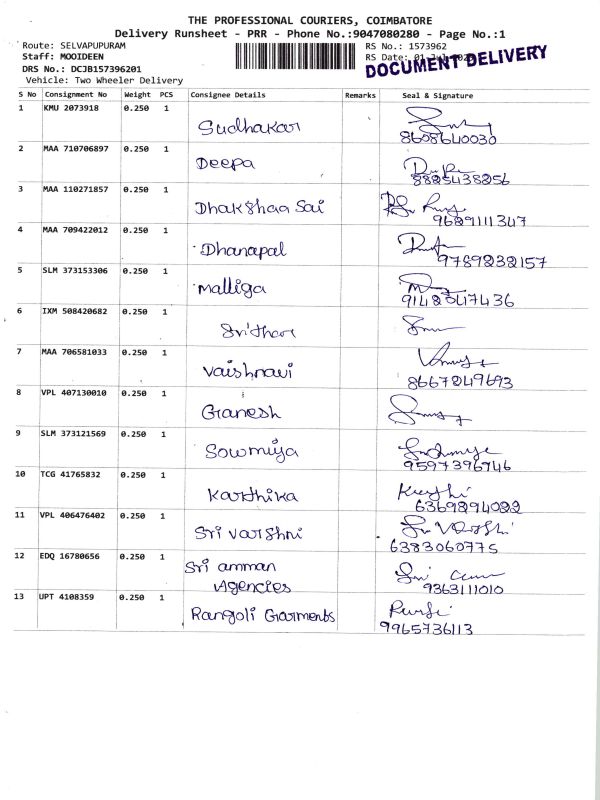 THE PROFESSIONAL COURIERS, COIMBATORE
Delivery Runsheet - PRR - Phone No.:9047080280 - Page No.:1
Route: SELVAPUPURAM
RS No.: 1573962
Staff: MOOIDEEN
RS Date: 01
DOCUMENT DELIVERY
DRS No.: DCJB157396201
Vehicle: Two Wheeler Delivery
S No Consignment No Weight PCS Consignee Details Remarks Seal & Signature
1 KMU 2073918 0.250 1 Sudhakar
8608640030
2 MAA 710706897 0.250 1 Deepa
8825438256
3 MAA 110271857 0.250 1 Dhakshaa Sai
9629111347
4 MAA 709422012 0.250 1 Dhanapal
9789232157
5 SLM 373153306 0.250 1 Malliga
9142547436
6 IXM 508420682 0.250 1 Srithar
7 MAA 706581033 0.250 1 Vaishnavi
8667249693
8 VPL 407130010 0.250 1 Ganesh
9 SLM 373121569 0.250 1 Sowmiya
9597396746
10 TCG 41765832 0.250 1 Karthika
6369294022
11 VPL 406476402 0.250 1 Sri Varshni
6383060775
12 EDQ 16780656 0.250 1 Sri amman
Agencies
9363111010
13 UPT 4108359 0.250 1 Rangoli Garments
9965736113